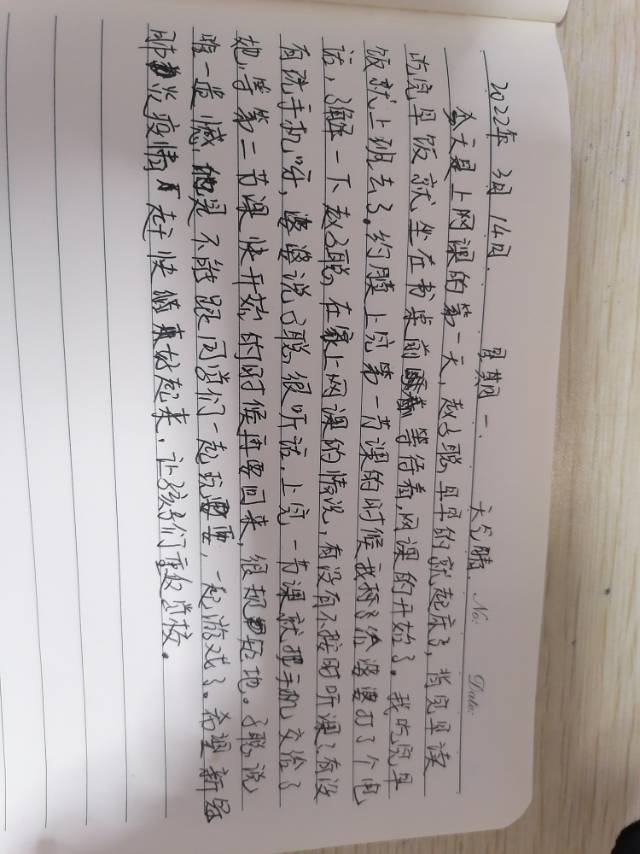 No:
Date:
2022年 3月 14日. 星期一. 天气晴.
今天是上网课的第一天, 赵子聪早早的就起床了, 当完早读
吃完早饭就坐在书桌前等待着, 网课的开始了。我吃完早
饭就上班去了。约莫上完第一节课的时候我给婆婆打了个电
话, 了解一下赵子聪在家上网课的情况, 有没有不按时听课、有没
有玩手机呀, 婆婆说子聪很听话. 上完一节课就把手机交给了
她, 等第二节课快开始的时候再要回来, 很地。子聪说
唯一遗憾是不能跟同学们一起玩耍, 一起游戏了。希望新冠
肺炎疫情赶快好起来, 让孩子们重返学校。